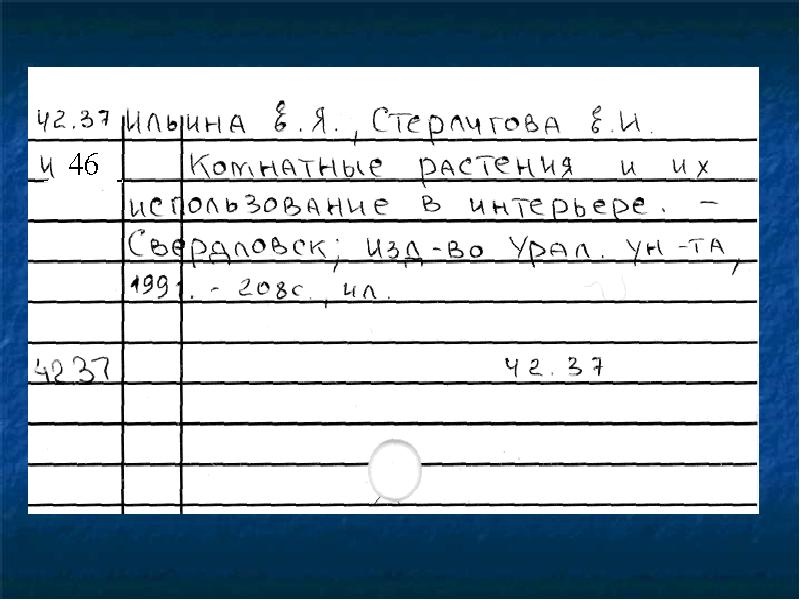 42.37 Ильина Е.Я., Стерлигова Е.И.
И 46 Комнатные растения и их
использование в интерьере. –
Свердловск; Изд-во Урал. ун-та,
1991. - 208с., ил.
42.37 42.37